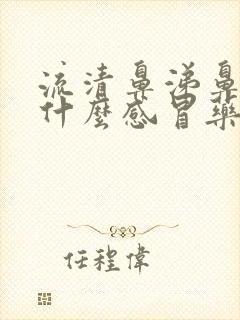 流清鼻涕鼻
什麼感冒藥
任程偉